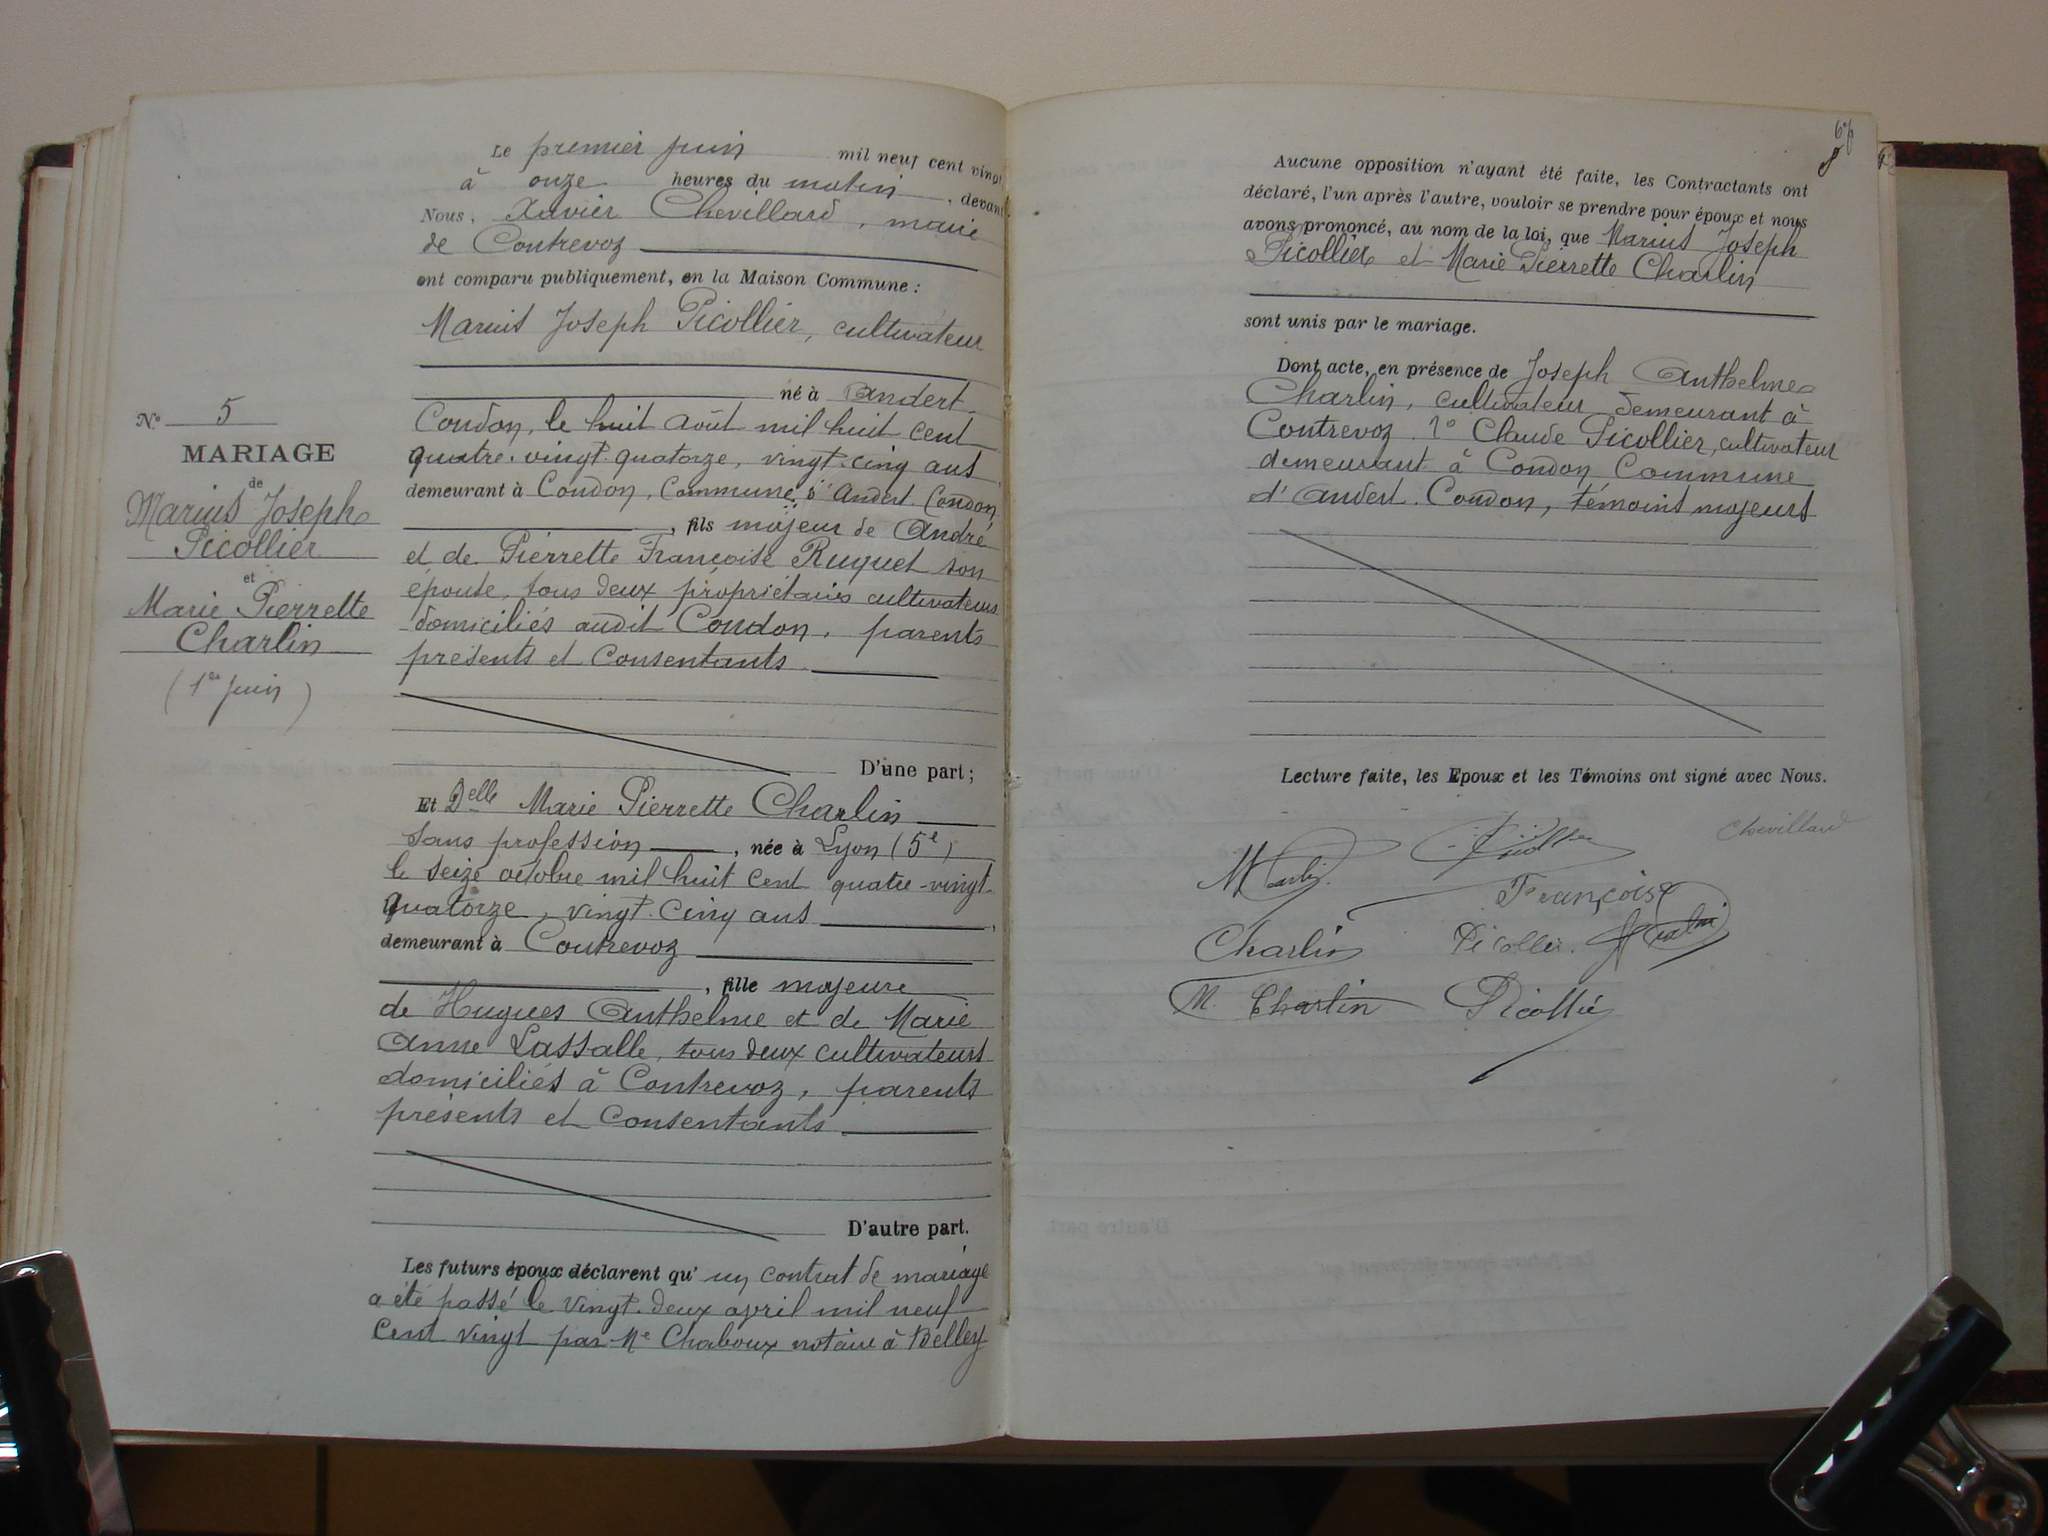 Le premier juin mil neuf cent vingt
à onze heures du matin, devant
Nous, Xavier Chevillard, maire
de Contrevoz
ont comparu publiquement, en la Maison Commune :
Marius Joseph Picollier, cultivateur
né à Andert-
Condon, le huit Août mil huit cent
quatre-vingt-quatorze, vingt-cinq ans
demeurant à Condon, Commune d'Andert-Condon
, fils majeur de André
et de Pierrette Françoise Ruquet son
épouse, tous deux propriétaires cultivateurs
domiciliés audit Condon, parents
présents et consentants
D'une part ;
Et Delle Marie Pierrette Charlin
sans profession, née à Lyon (5e)
le seize octobre mil huit cent quatre-vingt-
quatorze, vingt-cinq ans
demeurant à Contrevoz
, fille majeure
de Hugues Anthelme et de Marie
Anne Lassalle, tous deux cultivateurs
domiciliés à Contrevoz, parents
présents et consentants
D'autre part.
Les futurs époux déclarent qu'un contrat de mariage
a été passé le vingt-deux avril mil neuf
cent vingt par Me Chaboux notaire à Belley
No 5
MARIAGE
de
Marius Joseph
Picollier
et
Marie Pierrette
Charlin
(1er juin)
Aucune opposition n'ayant été faite, les Contractants ont
déclaré, l'un après l'autre, vouloir se prendre pour époux et nous
avons prononcé, au nom de la loi, que Marius Joseph
Picollier et Marie Pierrette Charlin
sont unis par le mariage.
Dont acte, en présence de Joseph Anthelme
Charlin, cultivateur demeurant à
Contrevoz. 2° Claude Picollier, cultivateur
demeurant à Condon Commune
d'Andert-Condon, témoins majeurs
Lecture faite, les Epoux et les Témoins ont signé avec Nous.
Chevillard
M Charlin
Picollier
Françoise
Charlin
Picollier.
M. Charlin
Picollier